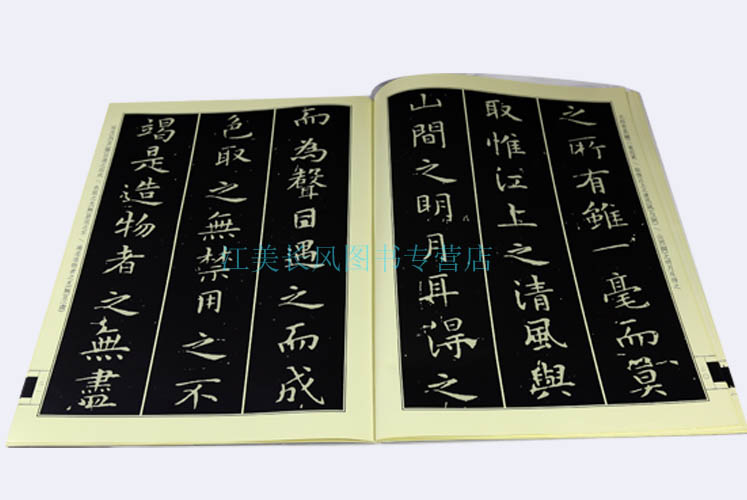 之所有雖一毫而莫
取惟江上之清風與
山間之明月耳得之
而為聲目遇之而成
色取之無禁用之不
竭是造物者之無盡
江美长风图书专营店